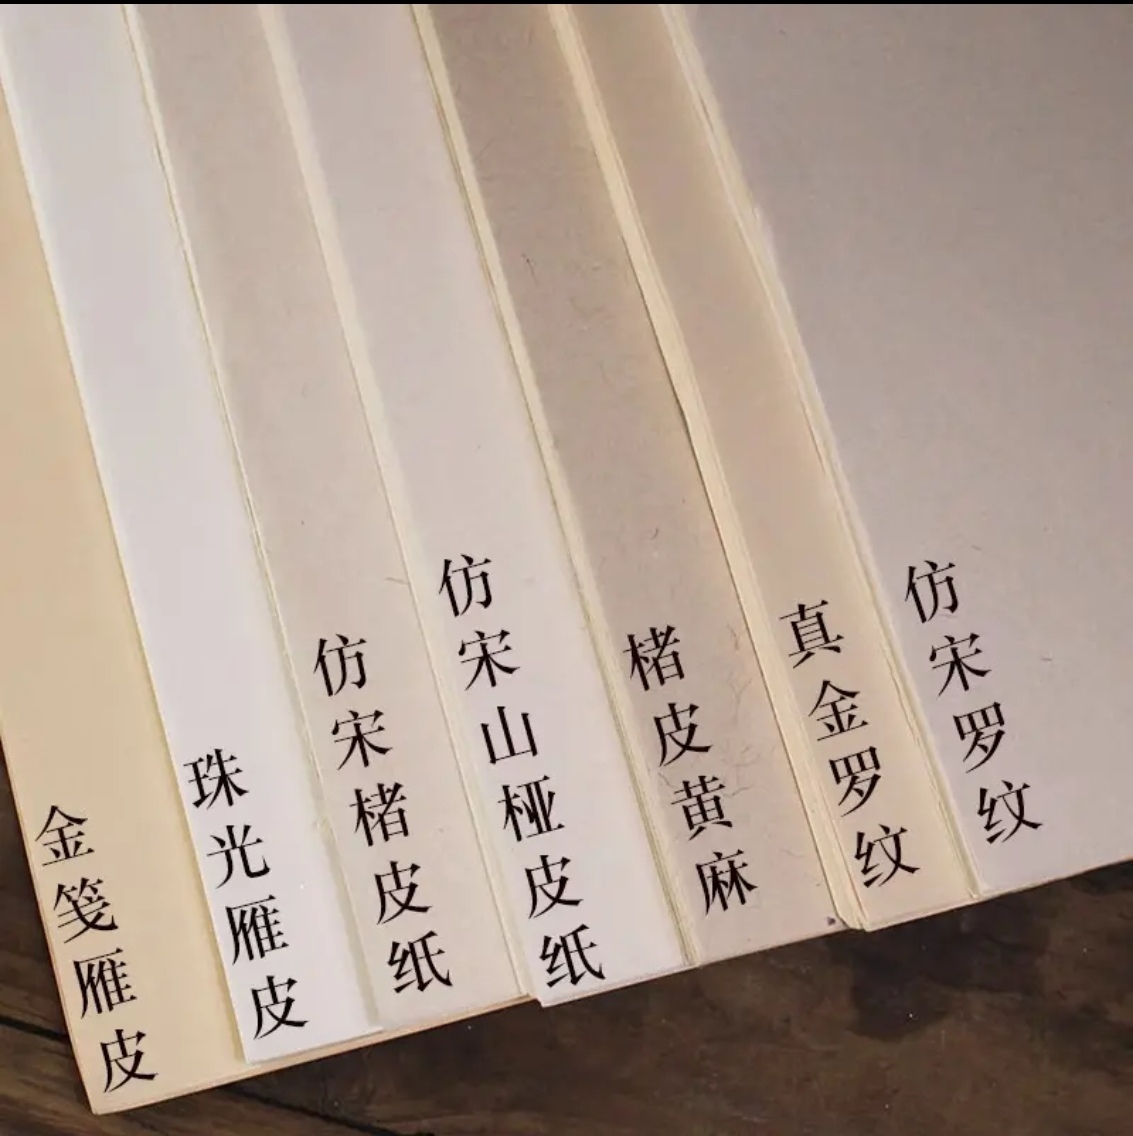 金笺雁皮
珠光雁皮
仿宋楮皮纸
仿宋山桠皮纸
楮皮黄麻
真金罗纹
仿宋罗纹